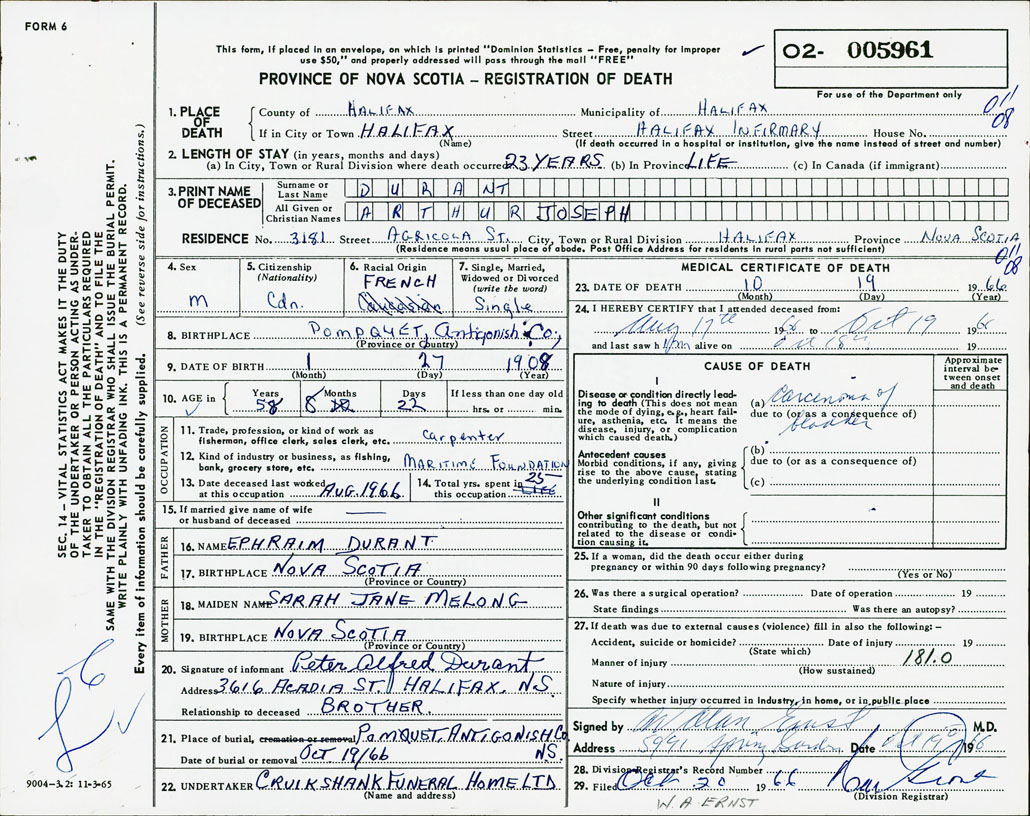 FORM 6
This form, if placed in an envelope, on which is printed "Dominion Statistics – Free, penalty for improper
use $50," and properly addressed will pass through the mail "FREE"
✓ 02- 005961
PROVINCE OF NOVA SCOTIA – REGISTRATION OF DEATH
For use of the Department only
011
08
1. PLACE OF DEATH
County of HALIFAX Municipality of HALIFAX
If in City or Town HALIFAX Street HALIFAX INFIRMARY House No.
(Name) (If death occurred in a hospital or institution, give the name instead of street and number)
2. LENGTH OF STAY (in years, months and days)
(a) In City, Town or Rural Division where death occurred 23 YEARS (b) In Province LIFE (c) In Canada (if immigrant)
3. PRINT NAME OF DECEASED
Surname or Last Name DURANT
All Given or Christian Names ARTHUR JOSEPH
RESIDENCE No. 3181 Street AGRICOLA ST. City, Town or Rural Division HALIFAX Province NOVA SCOTIA
(Residence means usual place of abode. Post Office Address for residents in rural parts not sufficient)
011
08
4. Sex
M
5. Citizenship
(Nationality)
Cdn.
6. Racial Origin
FRENCH
7. Single, Married,
Widowed or Divorced
(write the word)
Single
8. BIRTHPLACE POMPQUET, Antigonish Co,
(Province or Country)
9. DATE OF BIRTH 1 27 1908
(Month) (Day) (Year)
10. AGE in Years Months Days If less than one day old
✓ 58 8 22 hrs. or min.
OCCUPATION
11. Trade, profession, or kind of work as
fisherman, office clerk, sales clerk, etc. Carpenter
12. Kind of industry or business, as fishing,
bank, grocery store, etc. MARITIME FOUNDATION
13. Date deceased last worked
at this occupation AUG. 1966
14. Total yrs. spent in 25
this occupation LIFE
15. If married give name of wife
or husband of deceased —
FATHER
16. NAME EPHRAIM DURANT
17. BIRTHPLACE NOVA SCOTIA
(Province or Country)
MOTHER
18. MAIDEN NAME SARAH JANE MELONG
19. BIRTHPLACE NOVA SCOTIA
(Province or Country)
20. Signature of informant Peter Alfred Durant
Address 3616 ACADIA ST. HALIFAX, N.S.
Relationship to deceased BROTHER.
21. Place of burial, cremation or removal POMQUET, ANTIGONISH CO,
NS.
Date of burial or removal OCT 19/66
22. UNDERTAKER CRUIKSHANK FUNERAL HOME LTD
(Name and address)
MEDICAL CERTIFICATE OF DEATH
23. DATE OF DEATH 10 19 1966
(Month) (Day) (Year)
24. I HEREBY CERTIFY that I attended deceased from:
Aug 17th 1966 to Oct 19 1966
and last saw him alive on Oct 18th 19
CAUSE OF DEATH
Approximate
interval between onset
and death
I
Disease or condition directly leading to death (This does not mean
the mode of dying, e.g., heart failure, asthenia, etc. It means the
disease, injury, or complication
which caused death.)
(a) Carcinoma of
due to (or as a consequence of)
bladder
Antecedent causes
Morbid conditions, if any, giving
rise to the above cause, stating
the underlying condition last.
(b)
due to (or as a consequence of)
(c)
II
Other significant conditions
contributing to the death, but not
related to the disease or condition causing it.
25. If a woman, did the death occur either during
pregnancy or within 90 days following pregnancy?
(Yes or No)
26. Was there a surgical operation? Date of operation 19
State findings Was there an autopsy?
27. If death was due to external causes (violence) fill in also the following: –
Accident, suicide or homicide? Date of injury 19
(State which)
Manner of injury 181.0
(How sustained)
Nature of injury
Specify whether injury occurred in industry, in home, or in public place
Signed by W Alan Ernst M.D.
Address 5991 Spring Garden Date Oct 19 1966
28. Division Registrar's Record Number
29. Filed Oct 20 1966
(Division Registrar)
W. A. ERNST
SEC. 14 – VITAL STATISTICS ACT MAKES IT THE DUTY
OF THE UNDERTAKER OR PERSON ACTING AS UNDERTAKER TO OBTAIN ALL THE PARTICULARS REQUIRED
IN THE "REGISTRATION OF DEATH" AND TO FILE THE
SAME WITH THE DIVISION REGISTRAR WHO SHALL ISSUE THE BURIAL PERMIT.
WRITE PLAINLY WITH UNFADING INK. THIS IS A PERMANENT RECORD.
Every item of information should be carefully supplied. (See reverse side for instructions.)
9004-3.2: 11-3-65